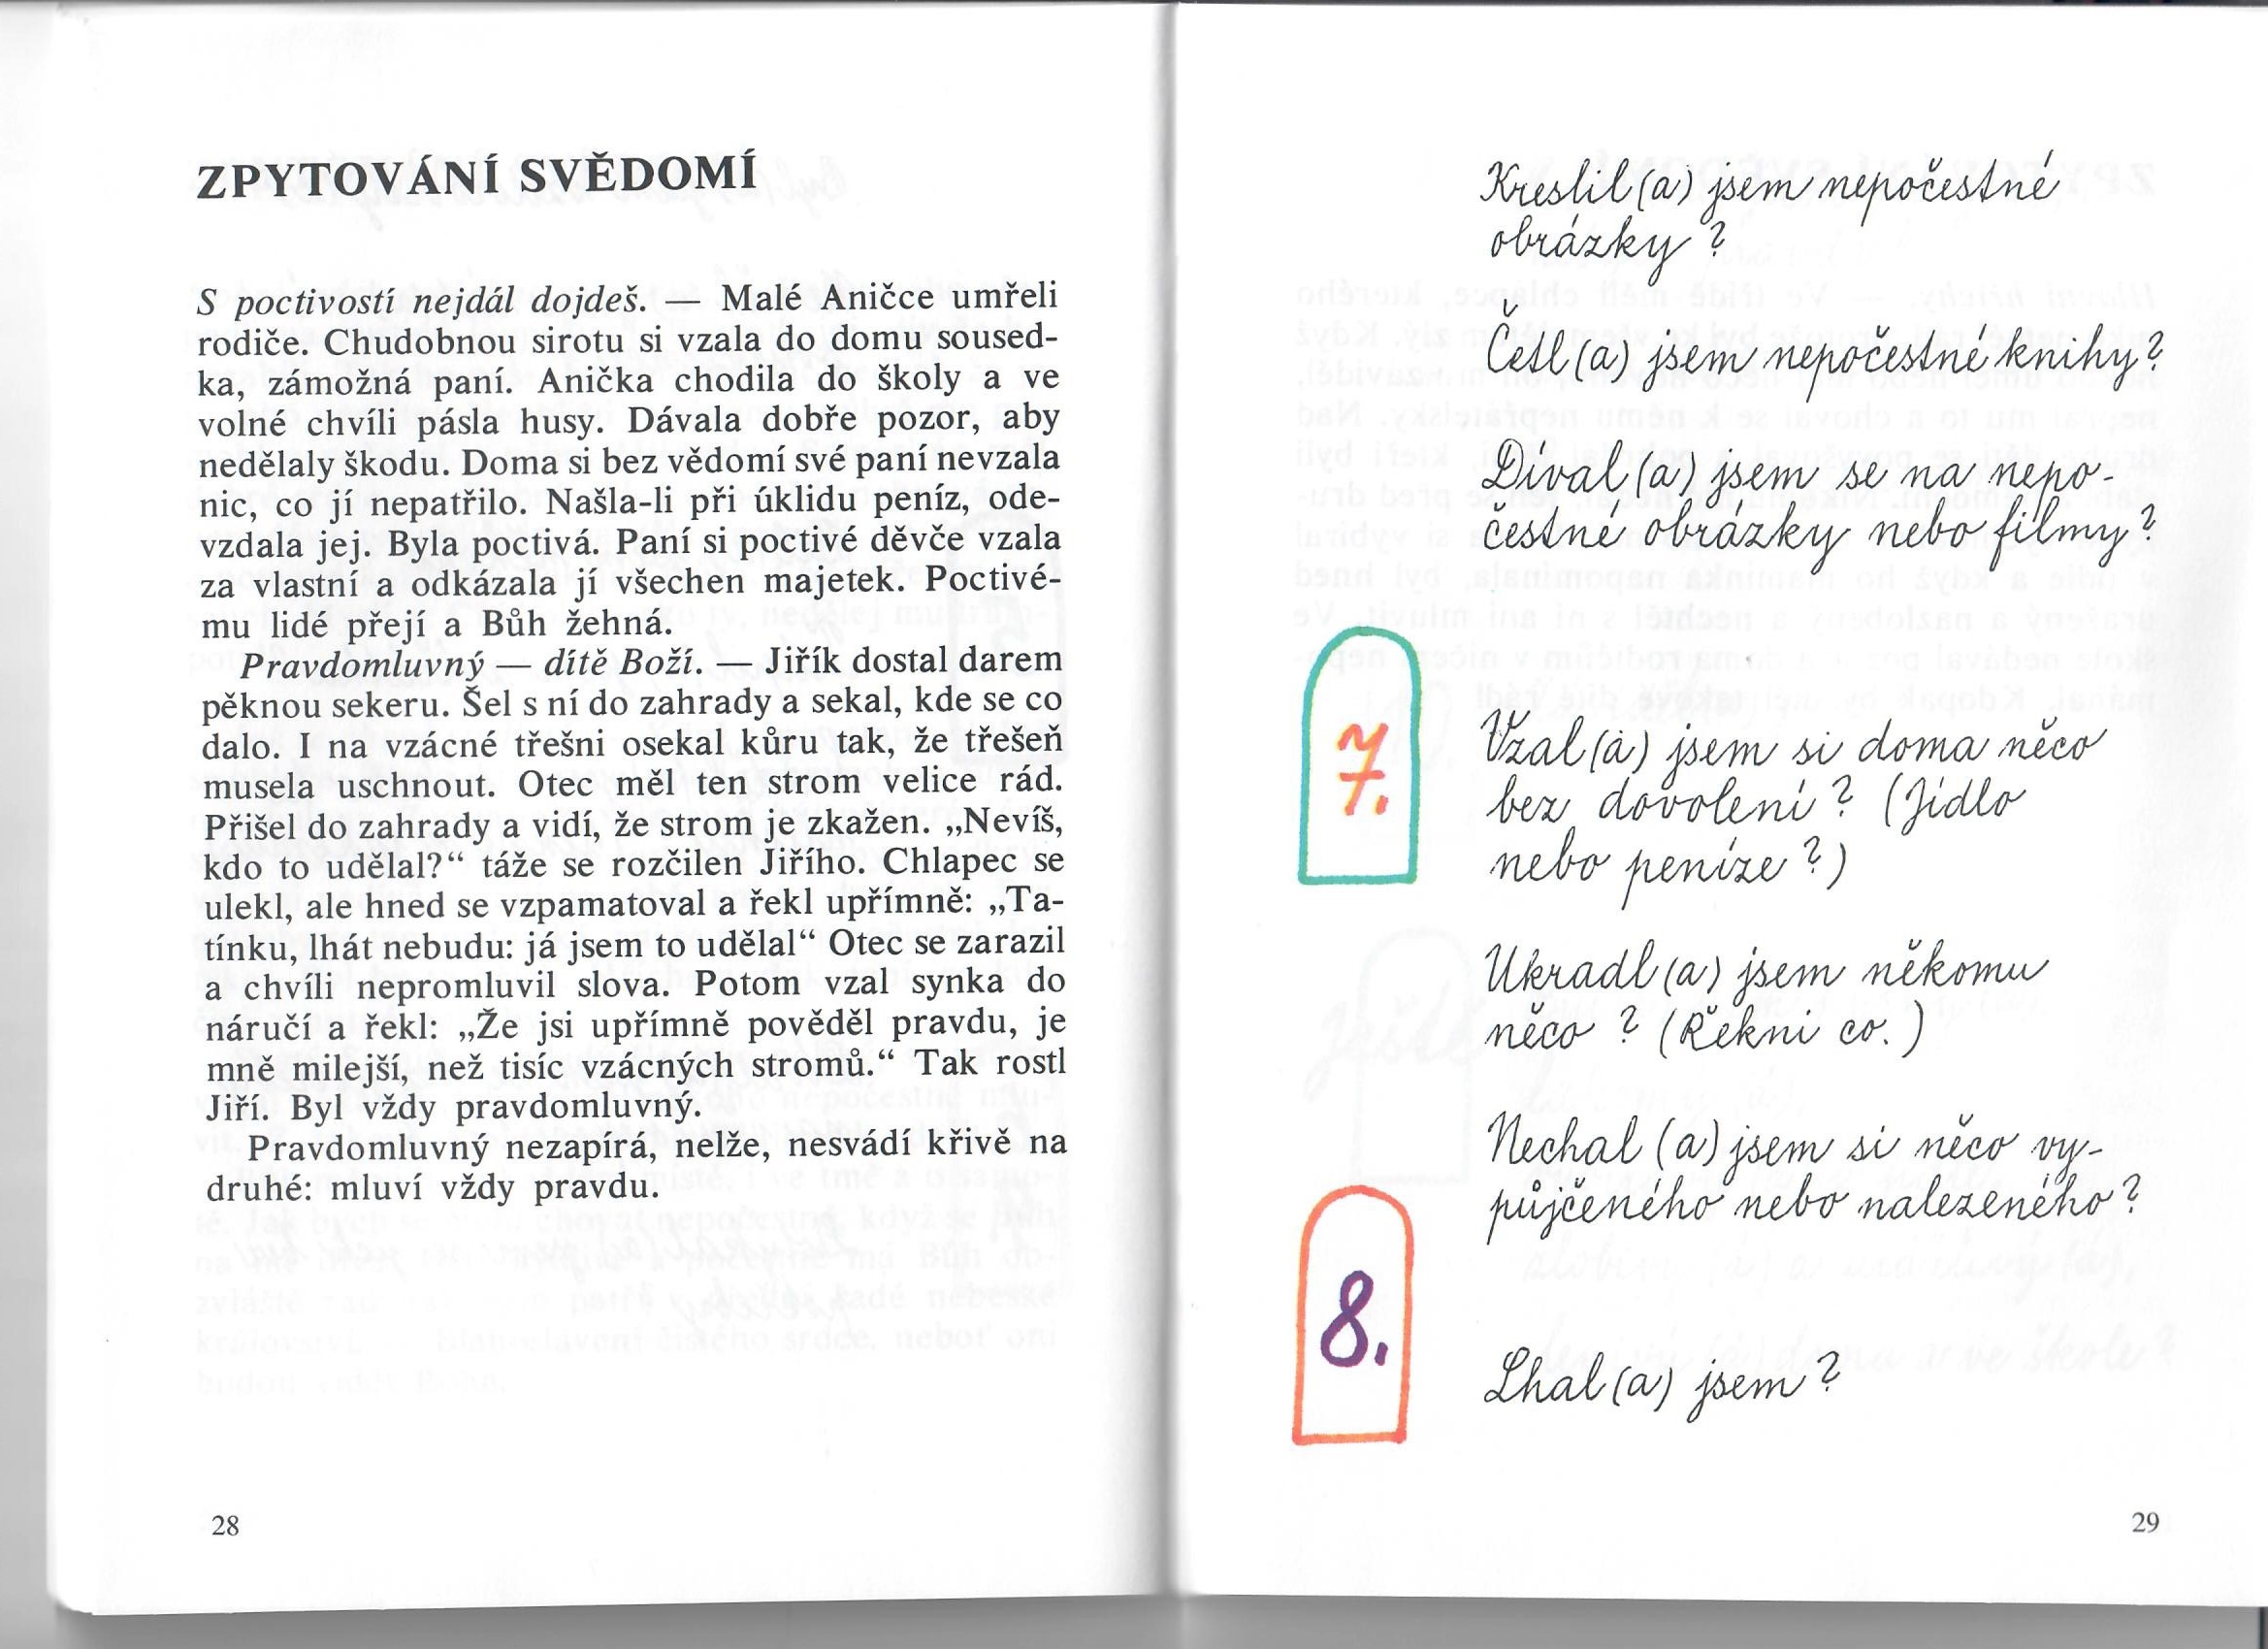 ZPYTOVÁNÍ SVĚDOMÍ
S poctivostí nejdál dojdeš. — Malé Aničce umřeli
rodiče. Chudobnou sirotu si vzala do domu soused-
ka, zámožná paní. Anička chodila do školy a ve
volné chvíli pásla husy. Dávala dobře pozor, aby
nedělaly škodu. Doma si bez vědomí své paní nevzala
nic, co jí nepatřilo. Našla-li při úklidu peníz, ode-
vzdala jej. Byla poctivá. Paní si poctivé děvče vzala
za vlastní a odkázala jí všechen majetek. Poctivé-
mu lidé přejí a Bůh žehná.
Pravdomluvný — dítě Boží. — Jiřík dostal darem
pěknou sekeru. Šel s ní do zahrady a sekal, kde se co
dalo. I na vzácné třešni osekal kůru tak, že třešeň
musela uschnout. Otec měl ten strom velice rád.
Přišel do zahrady a vidí, že strom je zkažen. „Nevíš,
kdo to udělal?“ táže se rozčilen Jiřího. Chlapec se
ulekl, ale hned se vzpamatoval a řekl upřímně: „Ta-
tínku, lhát nebudu: já jsem to udělal“ Otec se zarazil
a chvíli nepromluvil slova. Potom vzal synka do
náručí a řekl: „Že jsi upřímně pověděl pravdu, je
mně milejší, než tisíc vzácných stromů.“ Tak rostl
Jiří. Byl vždy pravdomluvný.
Pravdomluvný nezapírá, nelže, nesvádí křivě na
druhé: mluví vždy pravdu.
28
Kreslil(a) jsem nepočestné
obrázky?
Četl(a) jsem nepočestné knihy?
Díval(a) jsem se na nepo-
čestné obrázky nebo filmy?
7.
Vzal(a) jsem si doma něco
bez dovolení? (Jídlo
nebo peníze?)
Ukradl(a) jsem někomu
něco? (Řekni co.)
Nechal(a) jsem si něco vy-
půjčeného nebo nalezeného?
8.
Lhal(a) jsem?
29